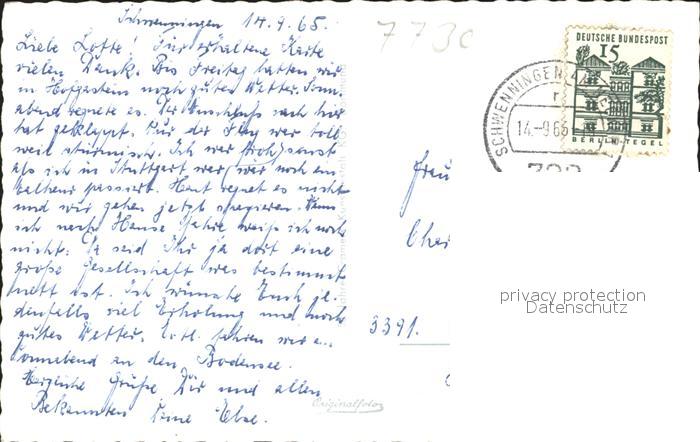 Schwenningen 14.9.65.
Liebe Lotte! Für erhaltene Karte
vielen Dank. Bis Freitag hatten wir
in Hofgastein noch gutes Wetter. Sonn-
abend regnete es. Der Anschluß nach hier
hat geklappt. Nur der Flug war toll
weil stürmisch. Ich war froh, sonst
als ich in Stuttgart war, war noch ein
passiert. Heut regnet es nicht
und wir gehen jetzt spazieren. Wann
ich nach Hause fahre weiß ich noch
nicht. Da seid Ihr ja dort eine
große Gesellschaft was bestimmt
nett ist. Ich wünsche Euch je-
denfalls viel Erholung und noch
gutes Wetter. Evtl. fahren wir a.
Sonnabend an den Bodensee.
Herzliche Grüße Dir und allen
Bekannten Deine Else.
773c
DEUTSCHE BUNDESPOST
15
BERLIN-TEGEL
SCHWENNINGEN
14.-9.65
Frau
3391.
privacy protection
Datenschutz
Originalfoto